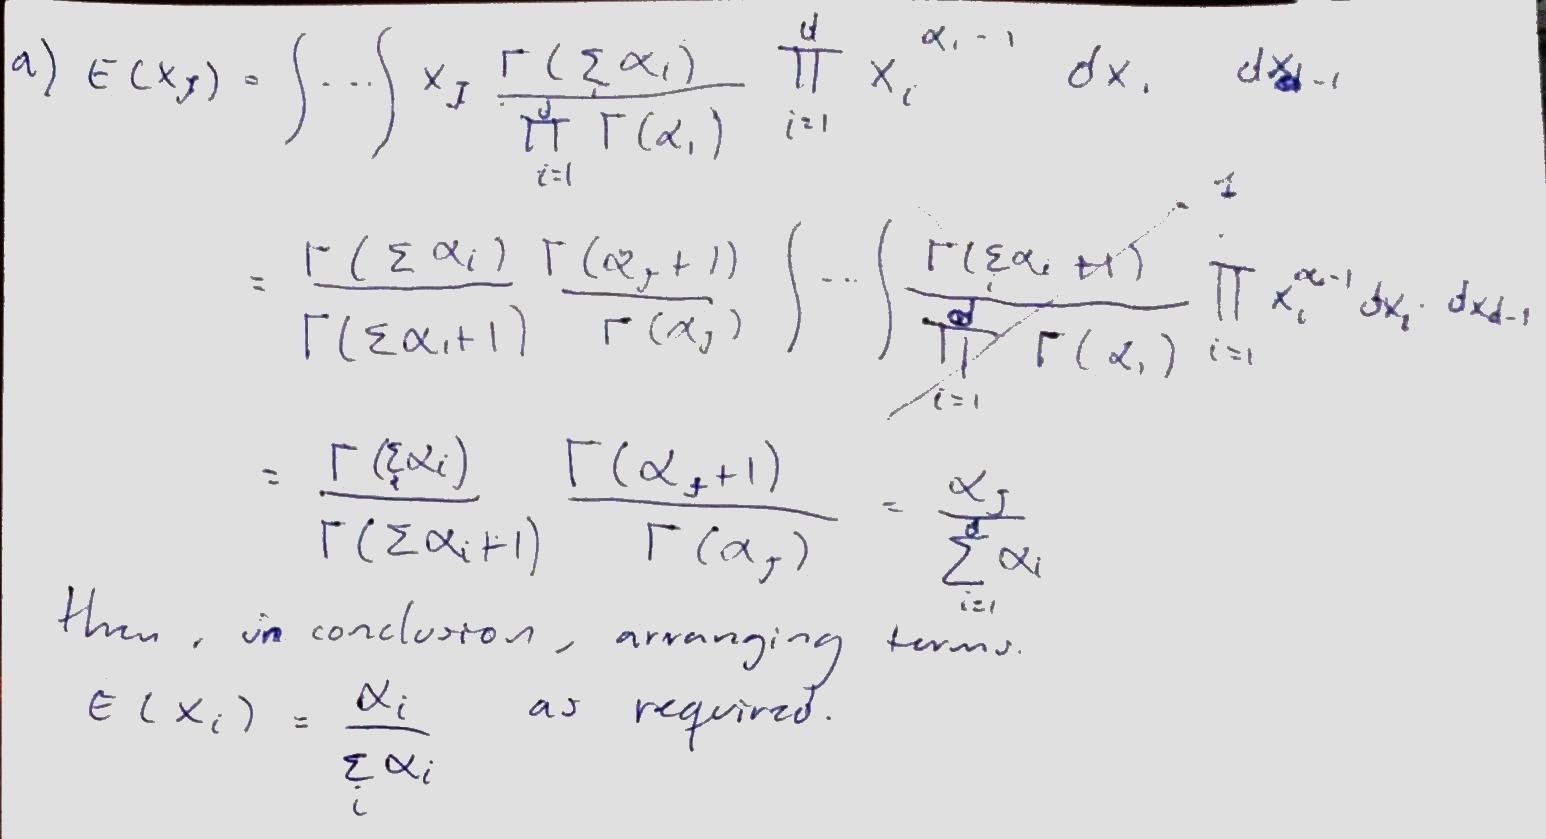 a) E(x_J) = ∫...∫ x_J Γ(∑_i α_i) / ∏_{i=1}^d Γ(α_i) ∏_{i=1}^d x_i^{α_i-1} dx_1 dx_{d-1}
= Γ(∑ α_i) / Γ(∑α_i+1) Γ(α_J+1) / Γ(α_J) ∫...∫ Γ(∑_i α_i +1) / ∏_{i=1}^d Γ(α_i) ∏_{i=1} x_i^{α-1} dx_1 · dx_{d-1} 1
= Γ(∑_i α_i) / Γ(∑α_i+1) Γ(α_J+1) / Γ(α_J) = α_J / ∑_{i=1}^d α_i
then, in conclusion, arranging terms.
E(x_i) = α_i / ∑_i α_i as required.